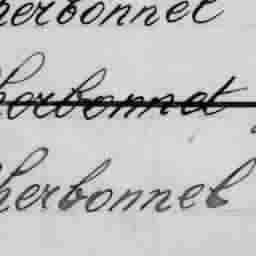 herbonnet
herbonnet
herbonnel